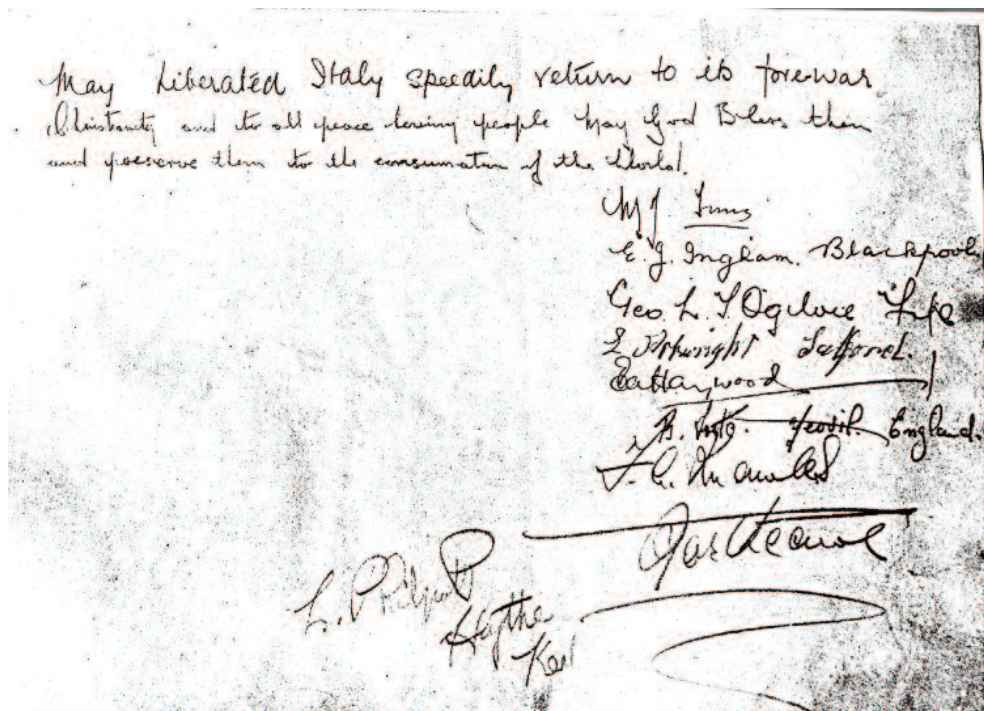 May Liberated Italy speedily return to its fore-war
Christianity and to all peace loving people May God Bless them
and preserve them to the consumation of the World.
M J
E. J. Ingham. Blackpool
Geo. L. Ogilvie Fife
Salford.
Haywood
B. Yeovil. England.
F. C. Knowles
Jas
L. Philpott
Hythe
Kent